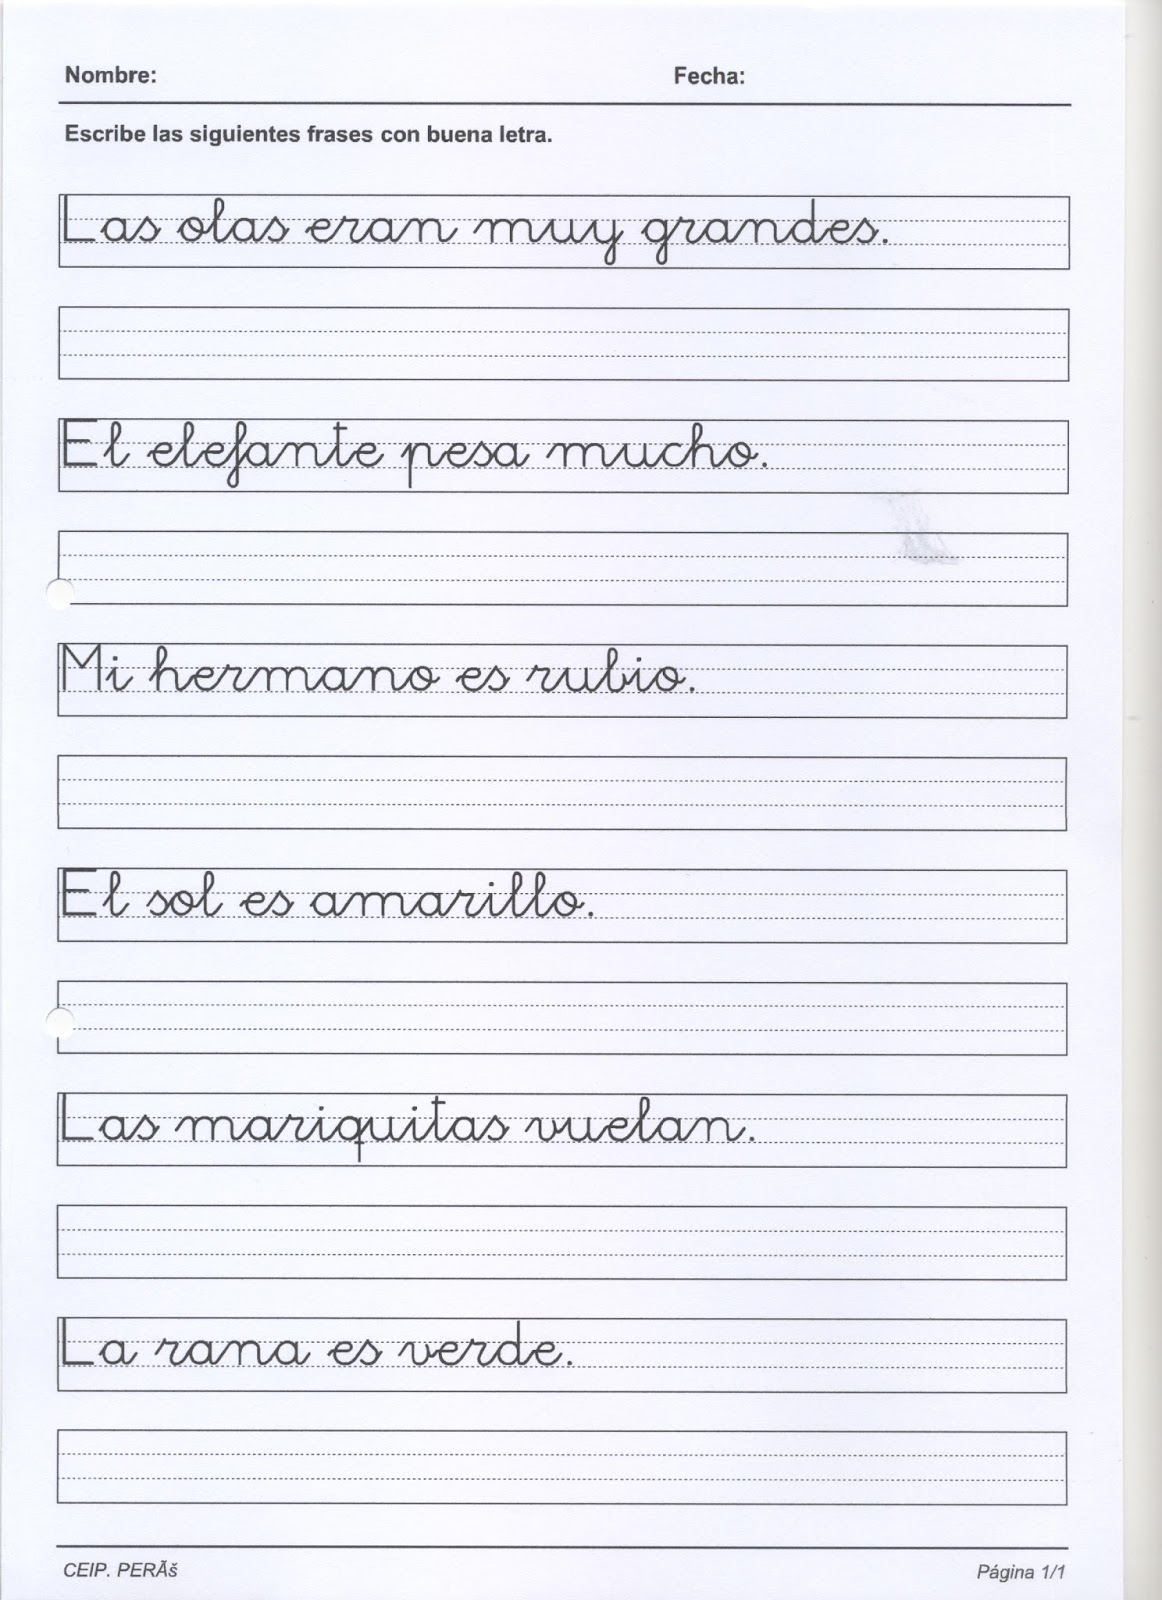 Nombre: Fecha:
Escribe las siguientes frases con buena letra.
Las olas eran muy grandes.
El elefante pesa mucho.
Mi hermano es rubio.
El sol es amarillo.
Las mariquitas vuelan.
La rana es verde.
CEIP. PERÃš Página 1/1